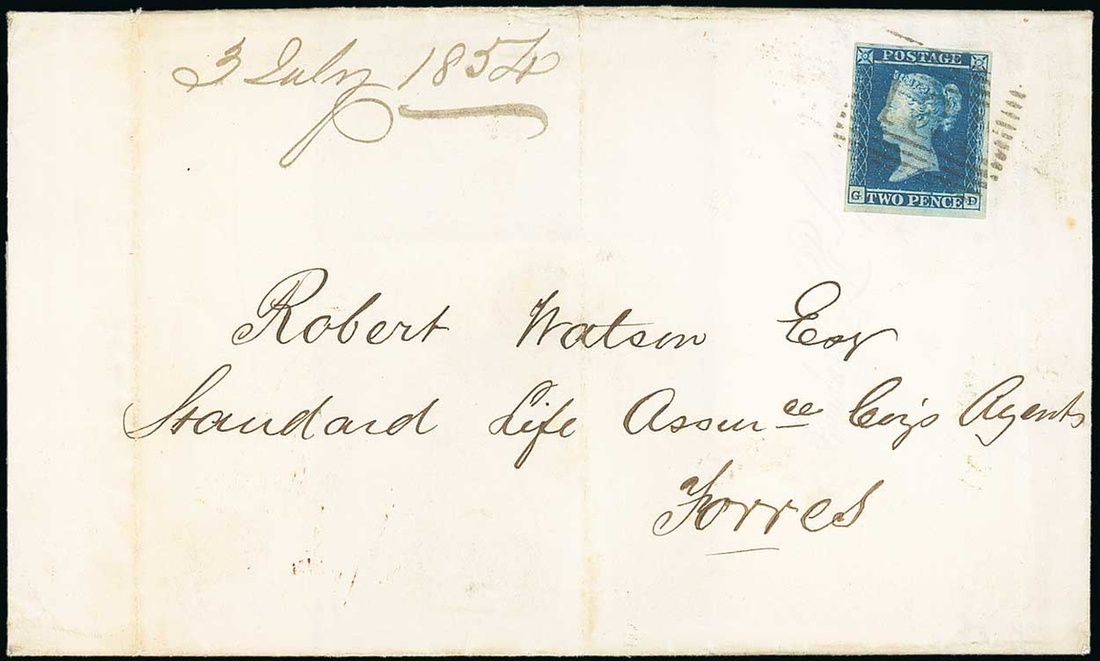 3 July 1854
POSTAGE
G TWO PENCE D
Robert Watson Esqr
Standard Life Assurce Coy's Agents
Forres